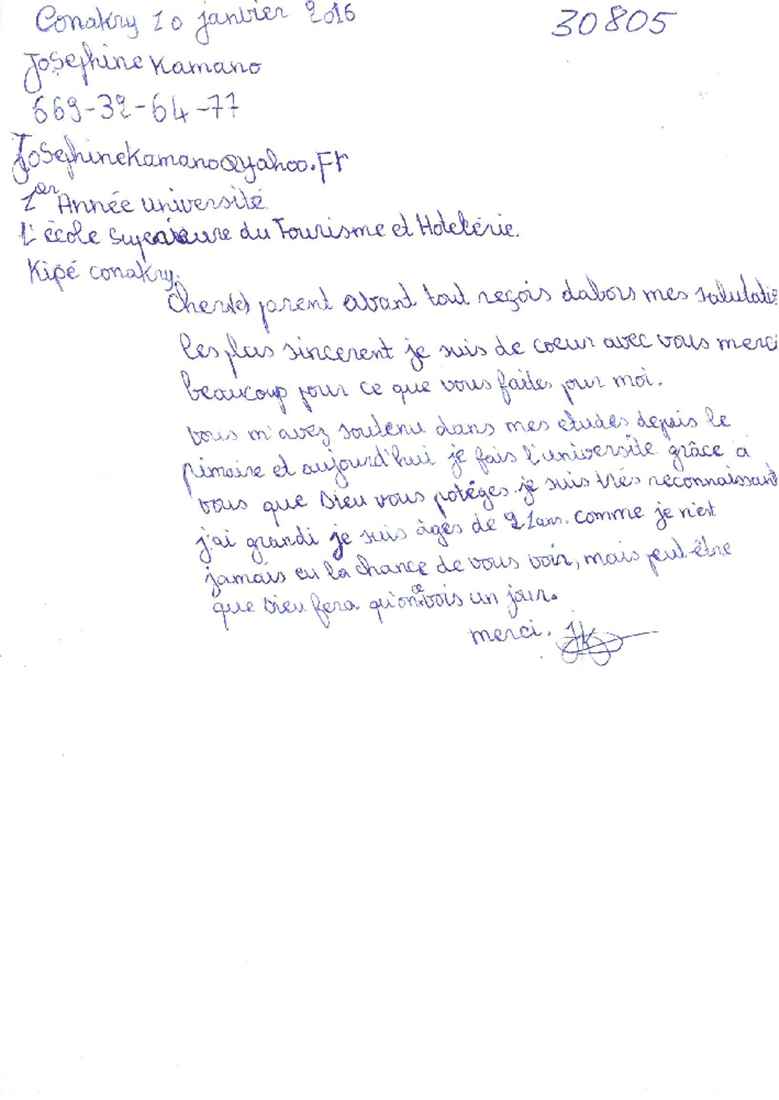 Conakry 10 janvier 2016
30805
Josephine Kamano
669-32-64-77
JosephineKamano@yahoo.Fr
1er Année université
L'école Superieure du Tourisme et Hotelerie.
Kipé conakry.
cher(e)s parent avant tout reçois dabors mes salutatio
les plus sincerent je suis de coeur avec vous merci
beaucoup pour ce que vous faites pour moi.
vous m'avez soutenu dans mes etudes depuis le
pimaire et aujourd'hui je fais l'université grâce a
vous que Dieu vous potéges. je suis très reconnaissant
j'ai grandi je suis âges de 21 ans. comme je n'est
jamais eu la chance de vous voir, mais peut-être
que Dieu fera qu'on ce vois un jour.
merci. JK